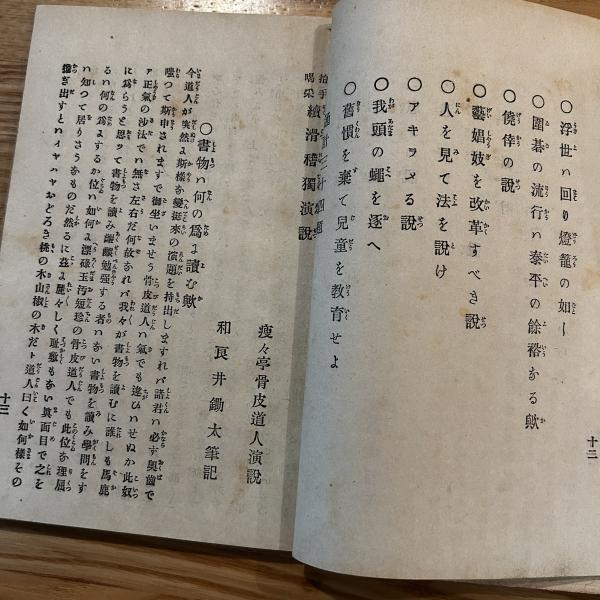 〇浮世ハ回り燈籠の如し
〇圍碁の流行ハ泰平の餘裕なる歟
〇僥倖の說
〇藝娼妓を改革すべき說
〇人を見て法を說け
〇アキラメる說
〇我頭の蠅を逐へ
〇舊慣を棄て兒童を敎育せよ
十二
拍手喝采
續滑稽獨演說
瘦々亭骨皮道人演說
和良井鋤太筆記
〇書物ハ何の爲に讀む歟
今道人が突然斯樣な變挺來の演題を持出しますれバ諸君ハ必ず奧齒で
嗤つて斯申されますで御坐いませう骨皮道人ハ氣でも違ひハせぬか此奴
ァ正氣の沙汰でハ無さ左右だ何故なれバ我々が書物を讀むに誰しも馬鹿
に爲らうと思ッて書物を讀み齷齪勉強する者ハない書物を讀み學問をす
るハ何の爲にするか位ハ如何に漂碌玉汚短珍の骨皮道人でも此位な理屈
ハ知つて居りさうなものだ然るに玆に麗々しく耻ぢもない箕面目で之を
擔ぎ出すとハイヤハヤおどろき桃の木山椒の木だト道人曰く如何樣その
十三